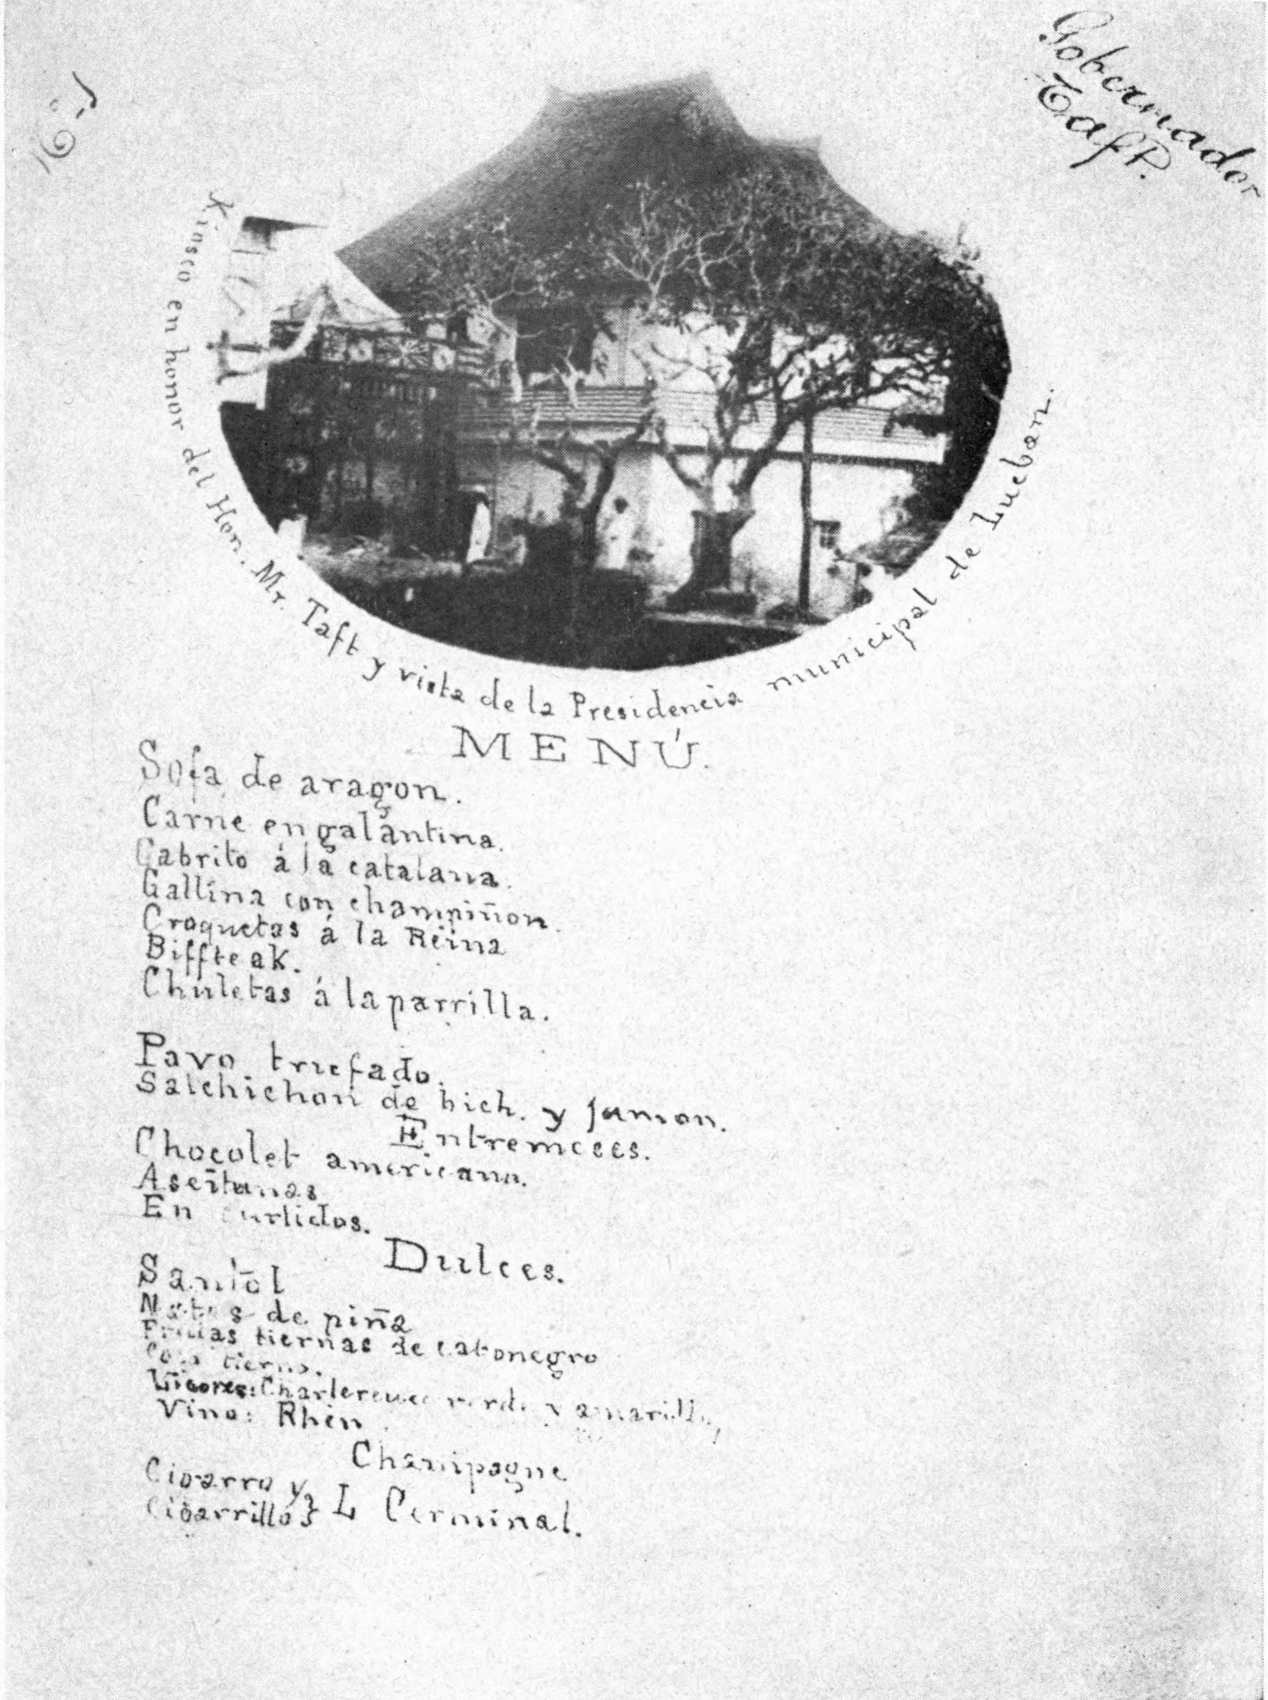 Gobernador
Taft.
Kiosco en honor del Hon. Mr. Taft y vista de la Presidencia municipal de Lucban.
MENÚ.
Sofa de aragon.
Carne en galantina.
Cabrito á la catalana.
Gallina con champiñon.
Croquetas á la Reina
Biffteak.
Chuletas á la parrilla.
Pavo trufado.
Salchichon de bich. y jamon.
Entremeses.
Chocolet americano.
Aseitunas
En curtidos.
Dulces.
Santol
Matas de piña
Frutas tiernas de cabonegro
Coco tierno.
Licores: verde y amarillo,
Vino: Rhin
Champagne
Cigarro y
Cigarrillo} L Cerminal.